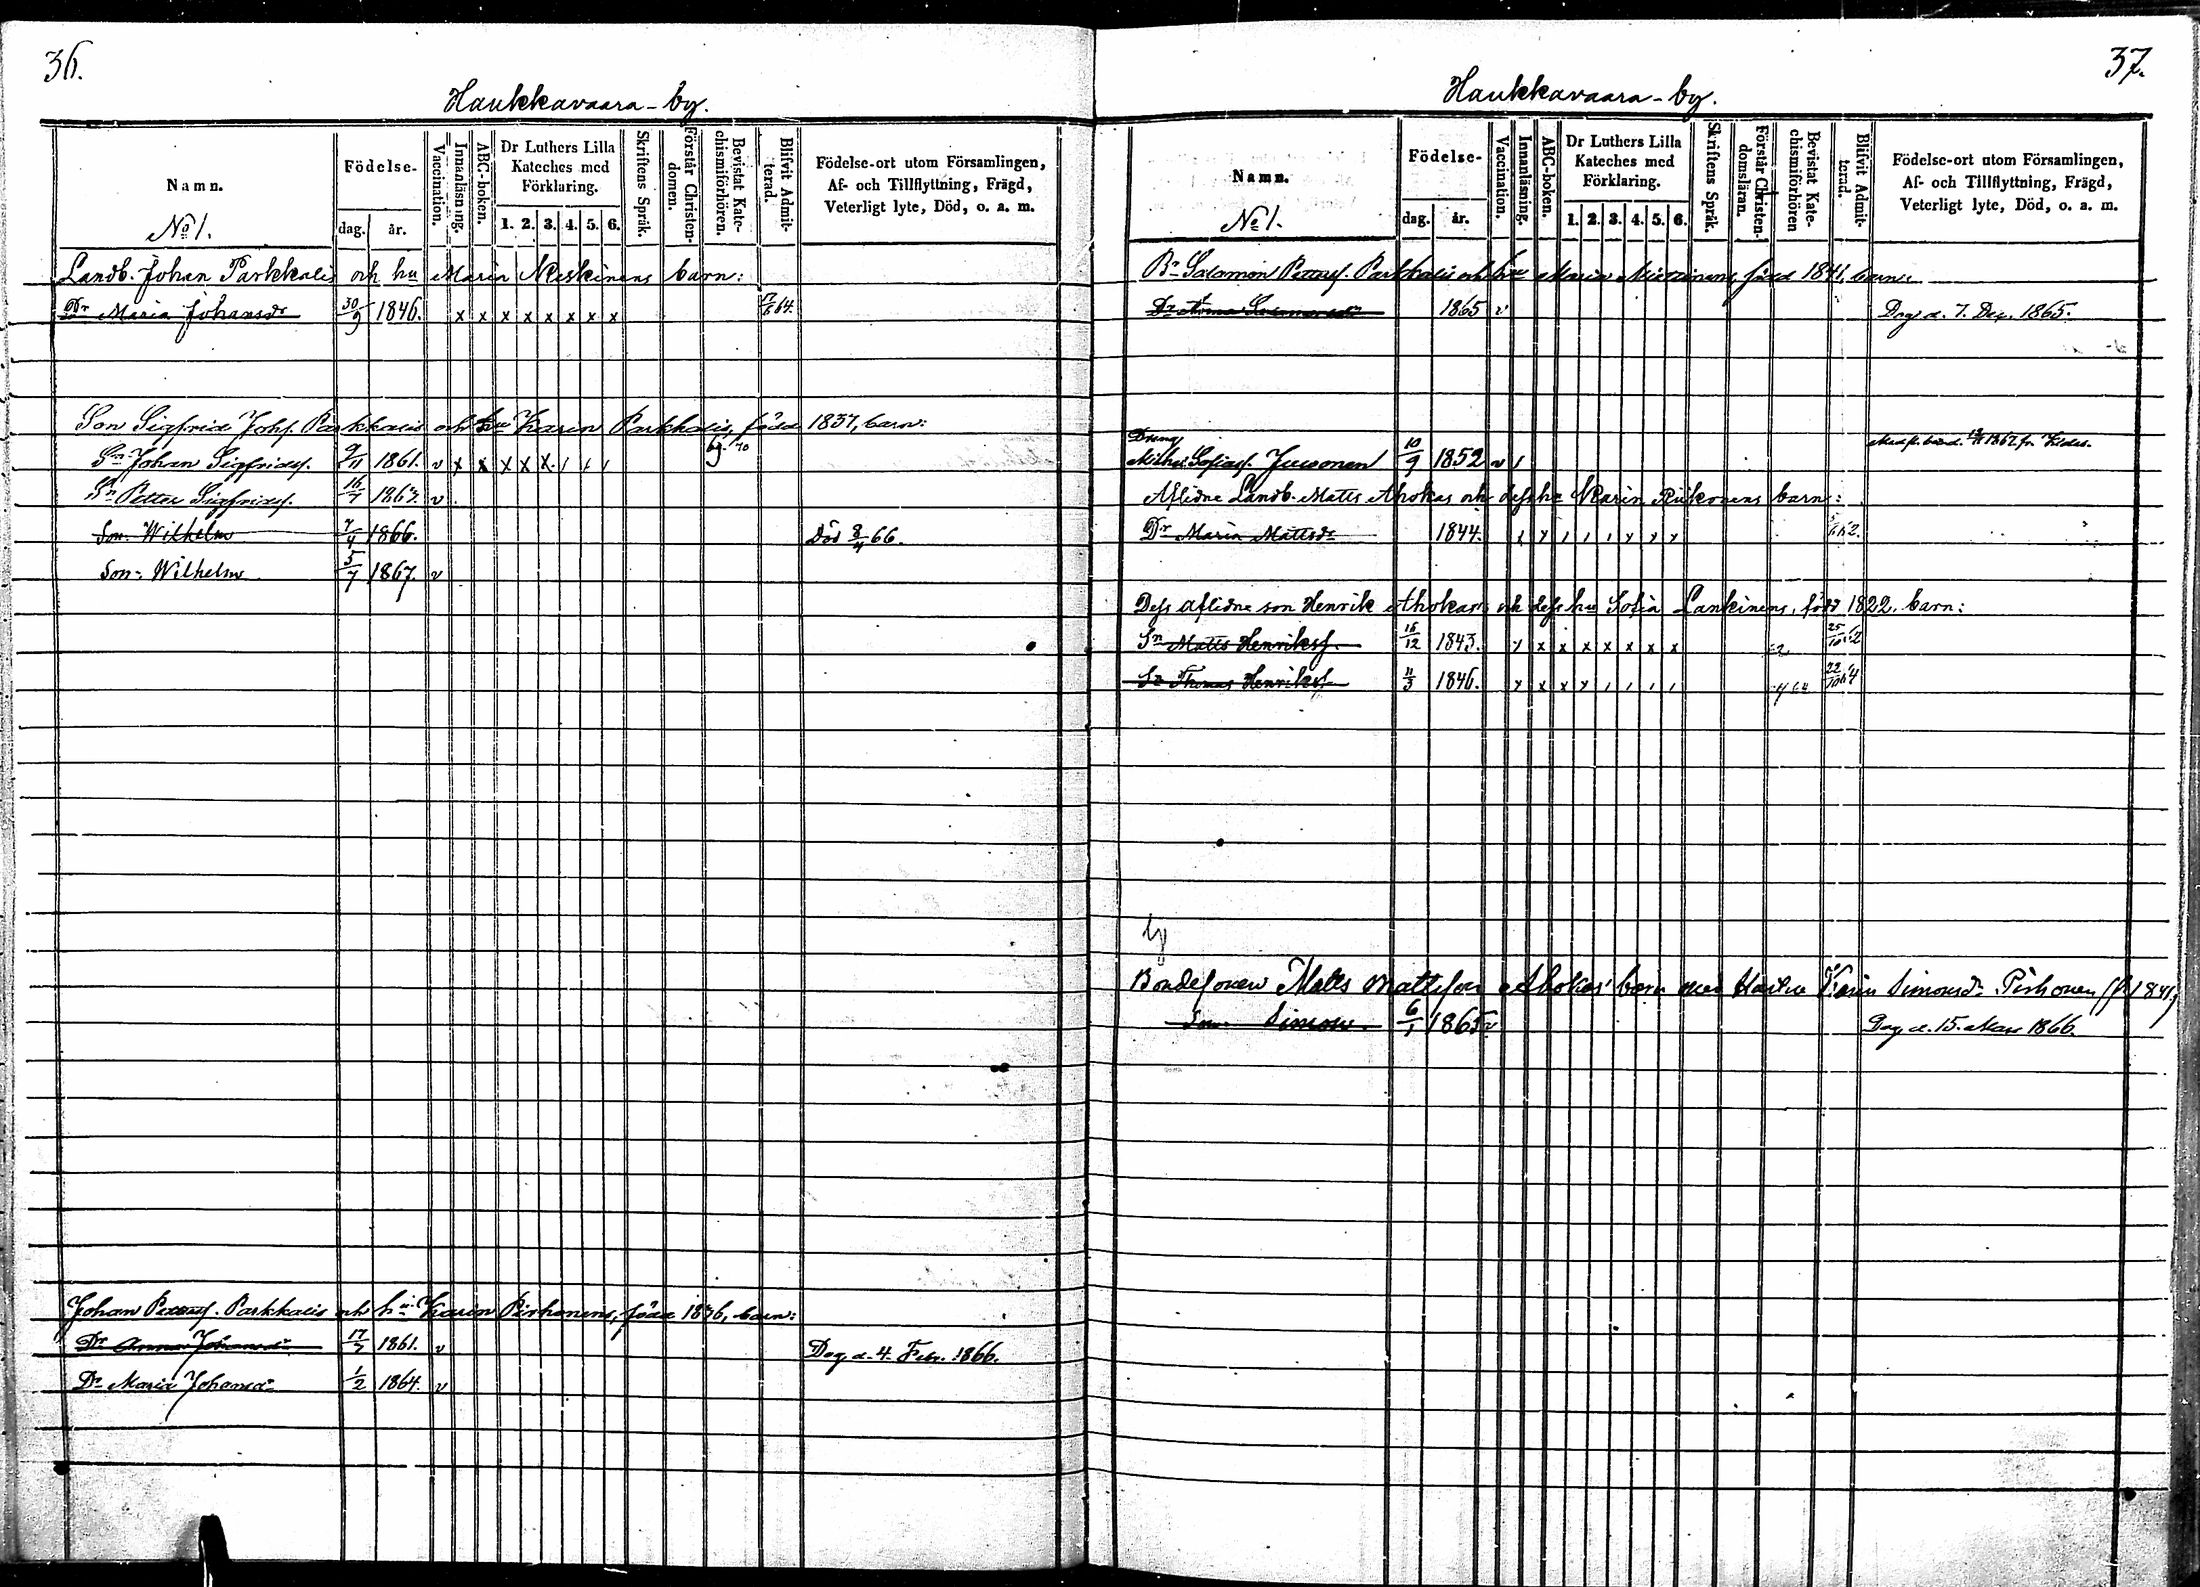 36.
Haukkavaara-by.
Namn.
No 1.
Födelse-
dag. år.
Vaccination.
Innanläsning.
ABC-boken.
Dr Luthers Lilla
Kateches med
Förklaring.
1. 2. 3. 4. 5. 6.
Skriftens Språk.
Förstår Christen-
domen.
Bevistat Kate-
chismiförhören.
Blifvit Admit-
terad.
Födelse-ort utom Församlingen,
Af- och Tillflyttning, Frägd,
Veterligt lyte, Död, o. a. m.
Landb. Johan Parkkalis och hu Maria Meskinens barn:
Dr Maria Johansdr 30/9 1846. x x x x x x x x 17/6 64.
Son Sigfrid Johs. Parkkalis och hu Karin Parkkalis, född 1837, barn:
Sn Johan Sigfridss. 9/11 1861. v x x x x x / / / 70
Sn Petter Sigfridss. v
Son Wilhelm 1866. Död 66.
Son Wilhelm 5/7 1867. v
Johan Petterss. Parkkalis och hu Karin Pirhonens, född 1836, barn:
Dr Anna Johansdr 17/7 1861. v Dog d. 4. Febr. 1866.
Dr Maria Johansdr 1/2 1864. v
37.
Haukkavaara-by.
Namn.
No 1.
Födelse-
dag. år.
Vaccination.
Innanläsning.
ABC-boken.
Dr Luthers Lilla
Kateches med
Förklaring.
1. 2. 3. 4. 5. 6.
Skriftens Språk.
Förstår Christen-
domsläran.
Bevistat Kate-
chismiförhören
Blifvit Admit-
terad.
Födelse-ort utom Församlingen,
Af- och Tillflyttning, Frägd,
Veterligt lyte, Död, o. a. m.
Br Salamon Petterss. Parkkalis och hu Maria Miettinens, född 1841, barn:
Dr Anna Salomonsdr 1865 v Dog d. 7. Dec. 1865.
Dreng
Juvonen 10/9 1852 v / 1867 fr.
Aflidne Landb. Matts Ahokas och dess hu Karin Riikonens barn:
Dr Maria Mattsdr 1844. 62.
Dess aflidne son Henrik Ahokas och dess hu Sofia Lankinens, född 1822, barn:
Sn Matts Henrikss. 1843. x x x x x x x 25/10 62
Sn Thomas Henrikss. 11/3 1846. 64 22/10 64
Bondesonen Matts Mattsson Ahokas' barn med Hustru Karin Simonsdr Pirhonen (f. 1841)
Son Simon. 6/1 1865 v Dog d. 15. Mars 1866.